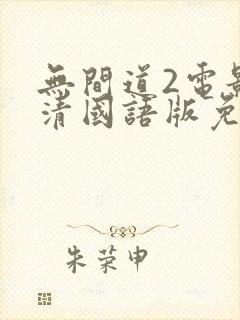 無間道2電影
清國語版免
朱荣申